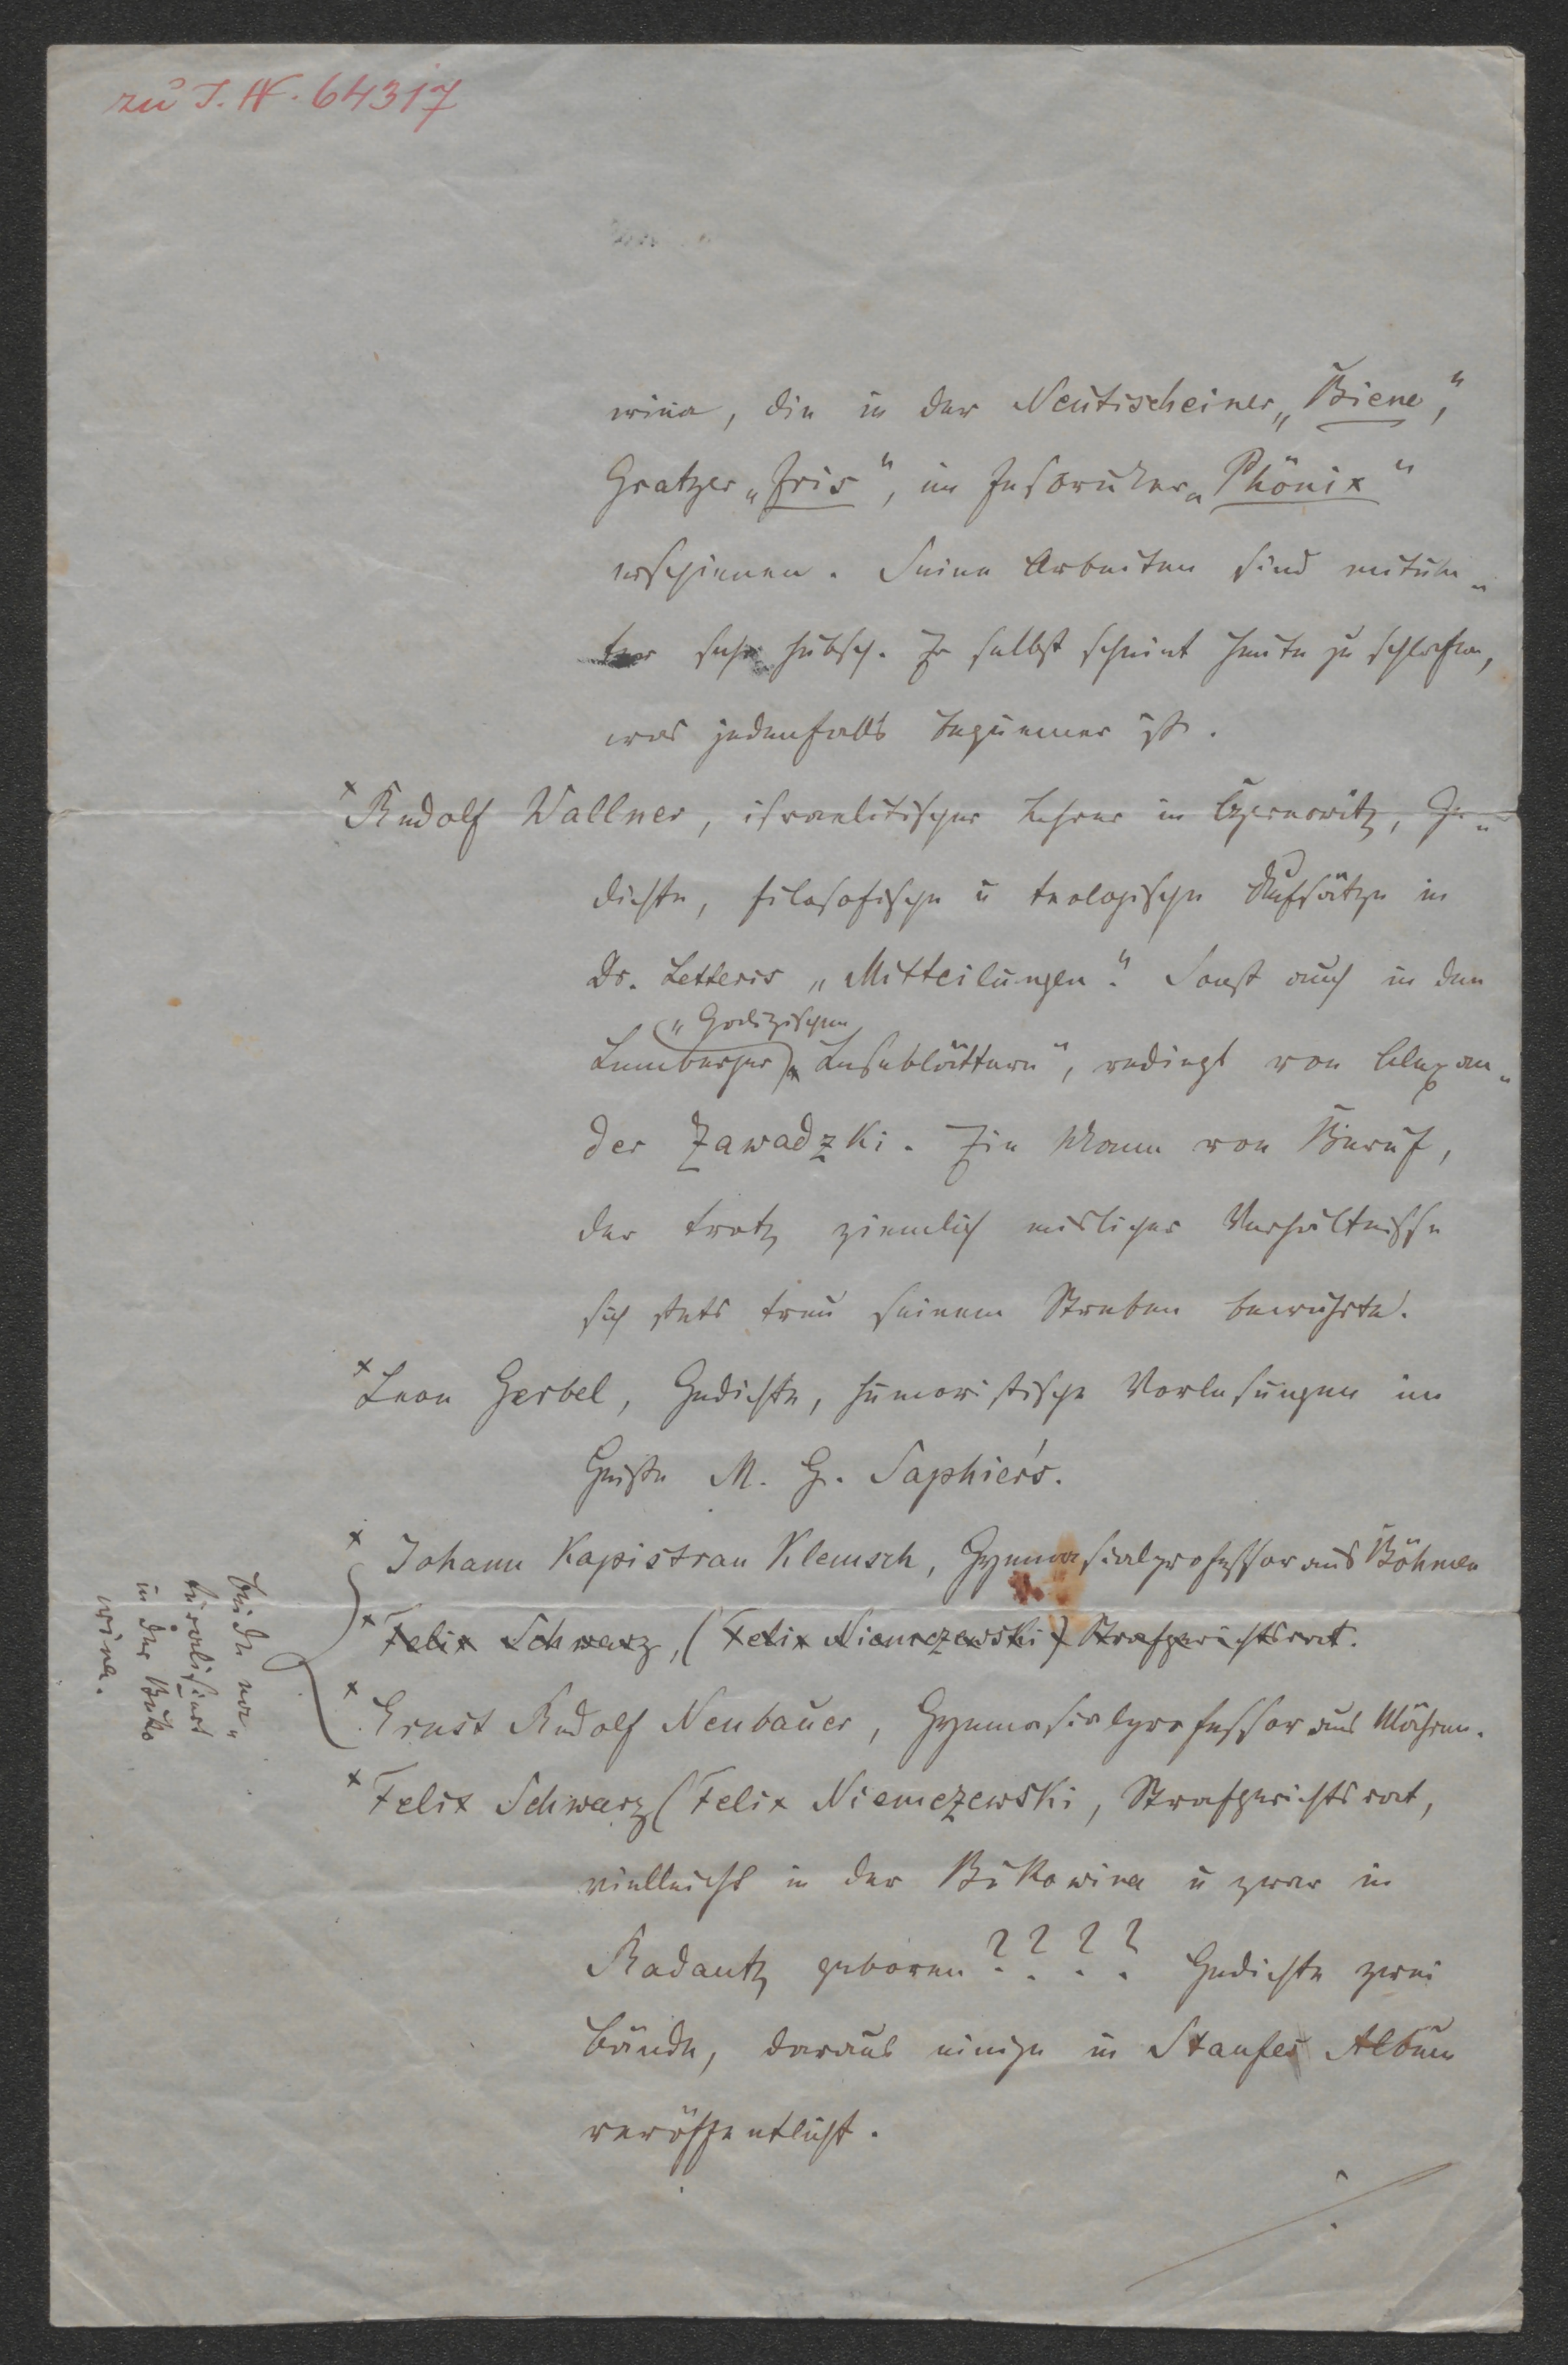 zu I. N. 64317
wina, die in der Neutischeiner „Biene“,
Gratzer „Iris“, im Insbruker „Phönix“
erschienen. Seine Arbeiten sind mitun-
ter sehr hübsch. Er selbst scheint heute zu schlafen,
was jedenfalls bequemer ist.
× Rudolf Wallner, israelitischer Lehrer in Czernowitz, Ge-
dichte, filosofische u teologische Aufsätze in
Dr. Letteris „Mitteilungen“. Sonst auch in den
„Galizischen
Lemberger Leseblättern“, redigt von Alexan-
der Zawadzki. Ein Mann von Beruf,
der trotz ziemlich mislicher Verhältnisse
sich stets treu seinem Streben bewahrte.
× Leon Gerbel, Gedichte, humoristische Vorlesungen im
Geiste M. G. Saphier's.
× Johann Kapistran Klemsch, Gymnasialprofessor aus Böhmen
× Felix Schwarz, (Felix Niemczewski) Strafgerichtsrat.
× Ernst Rudolf Neubauer, Gymnasialprofessor aus Mähren.
beide na-
turalisiert
in der Buko
wina.
× Felix Schwarz (Felix Niemczewski, Strafgerichtsrat,
vielleicht in der Bukowina u zwar in
Radautz geboren???? Gedichte zwei
Bände, daraus einige in Staufes Album
veröffentlicht.